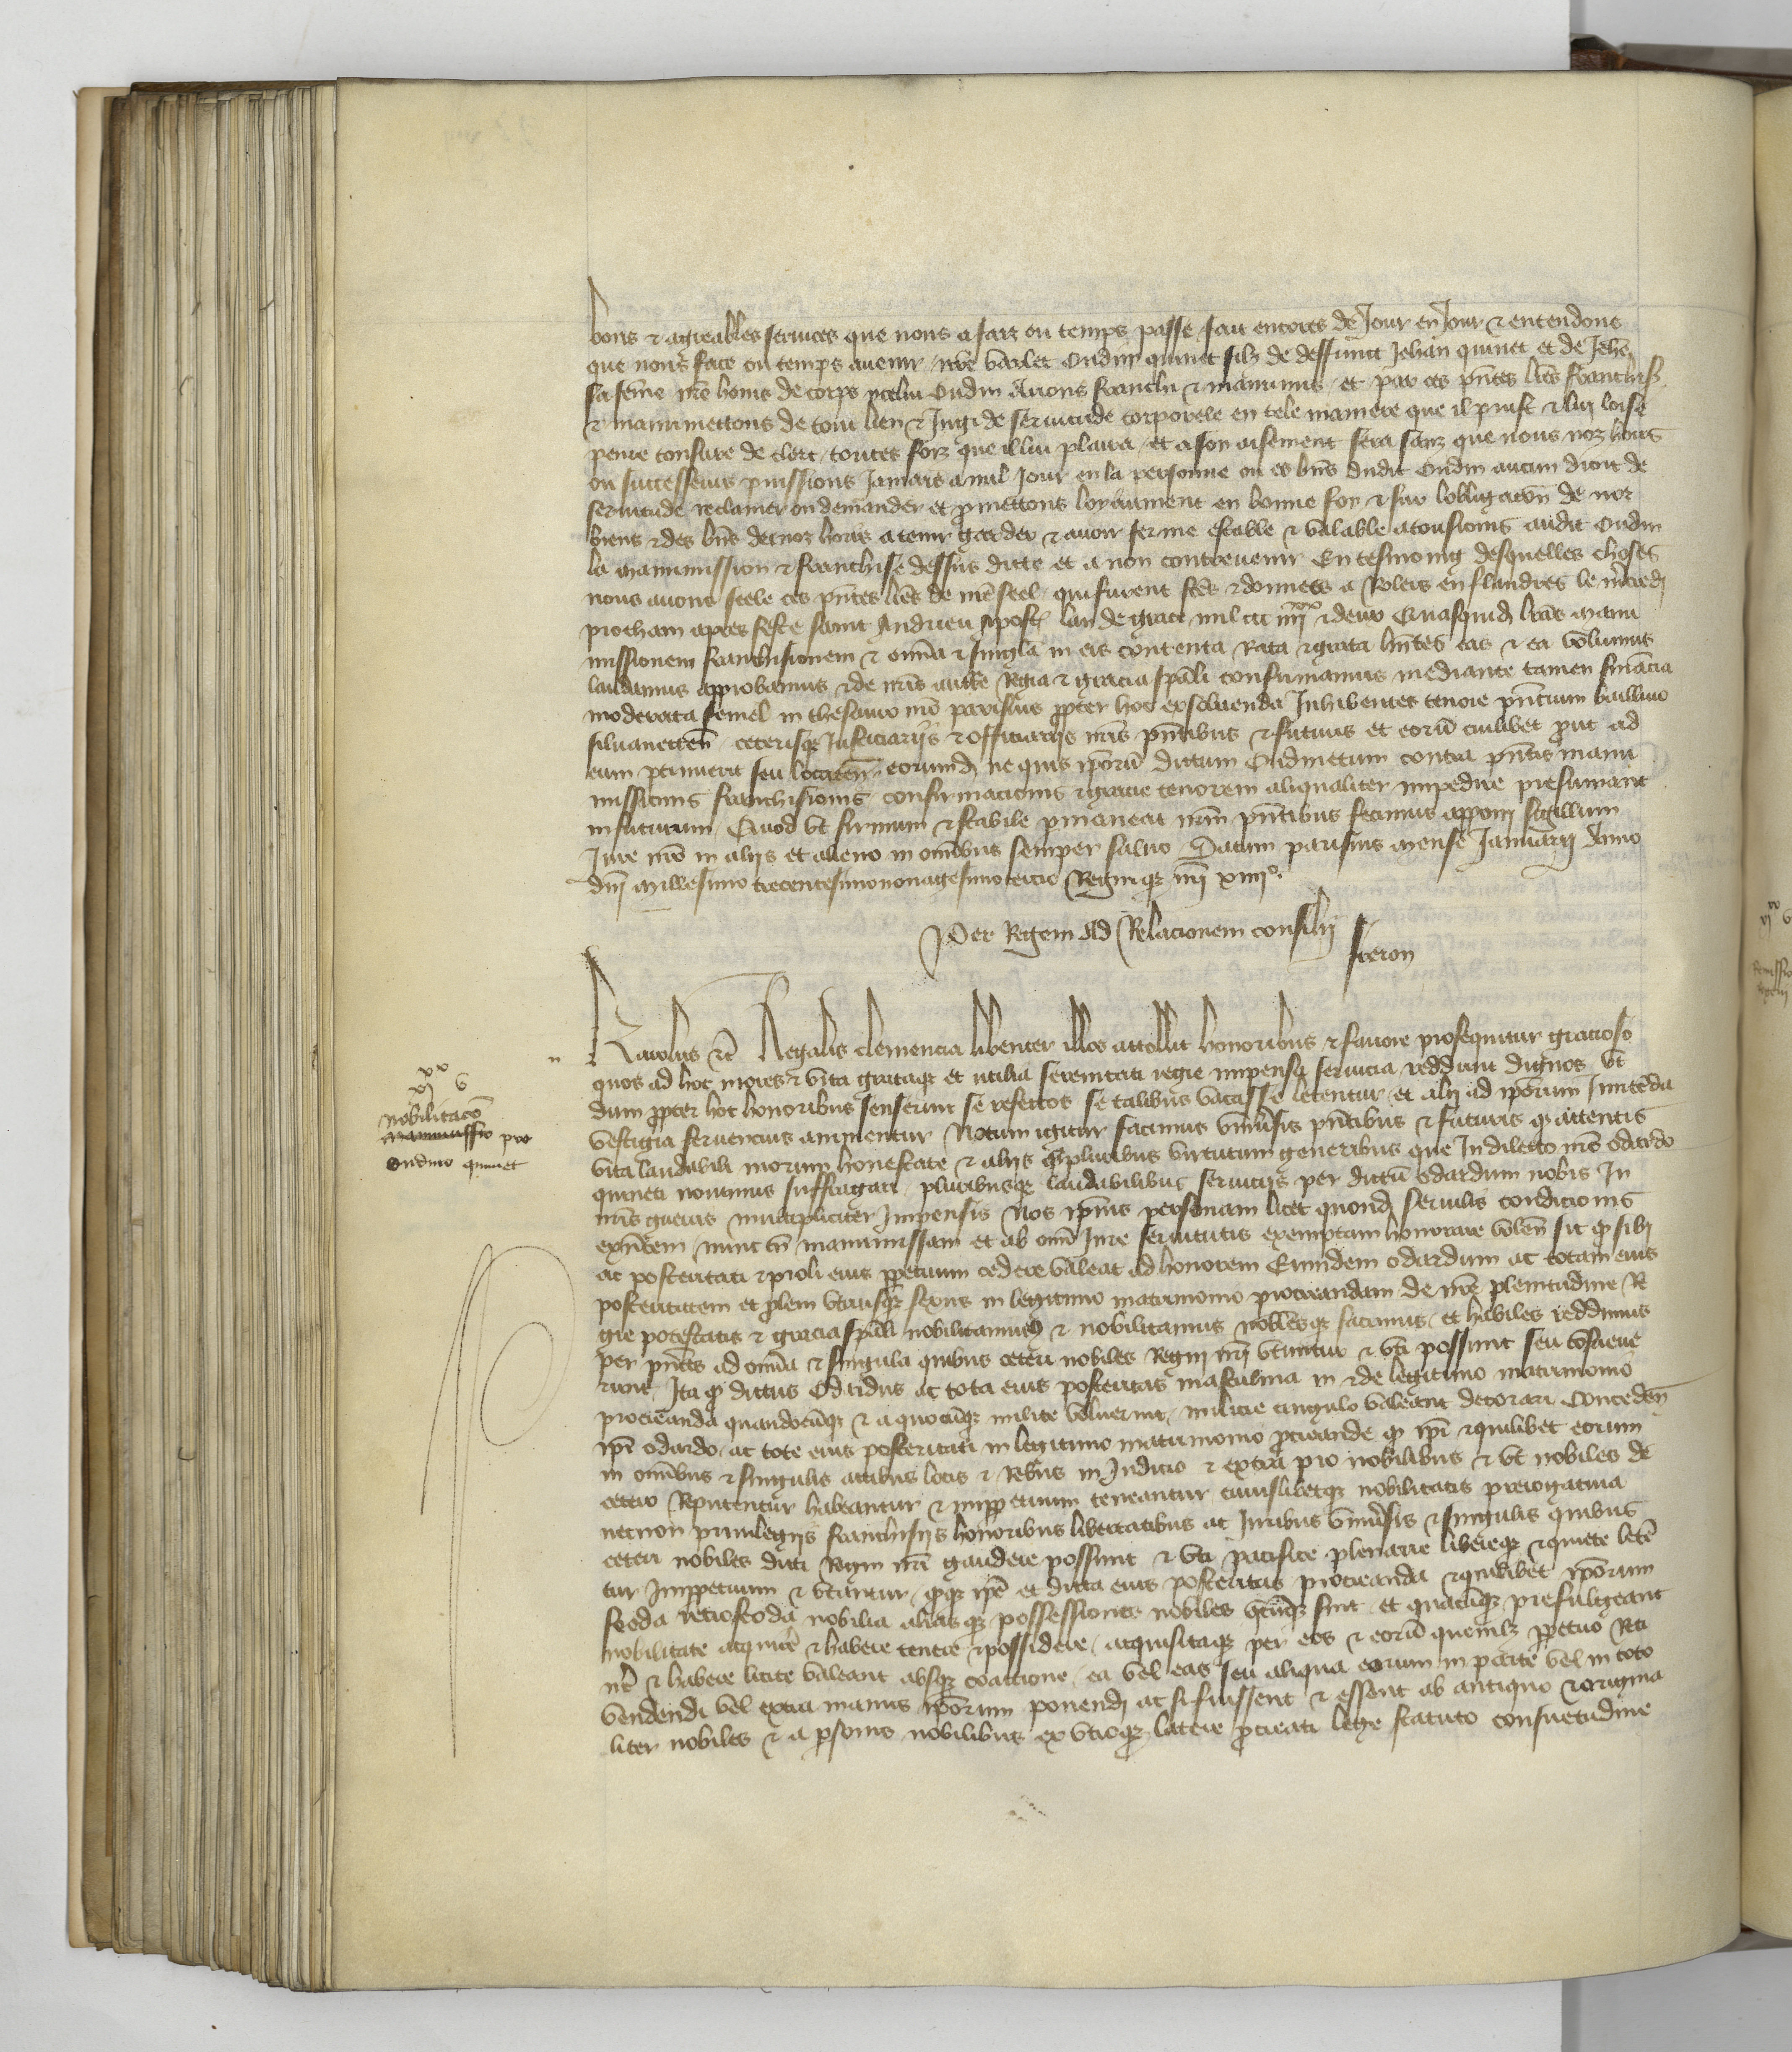 bons & agreables services que nous a faiz ou temps passe fait encores de Jour en Jour & entendons
que nous face ou temps avenir nre varlet Oudin quinet filz de deffunct Jehan quinet et de Jehe
sa feme nre home de corps ycelui Oudin Avons franchi & manumis et par ces pntes lres franchiss
& manumettons de tout lien & Jugide servitude corporele en tele maniere que il puist & lui loise
penre tonsure de clerc toutes foiz que il lui plaira et a son aisement sera sanz que nous noz hoirs
ou successeurs puissions Jamais a nul Jour en la personne ou es bns dudit Oudin aucun droit de
servitude reclamer ou demander et pmettons loyaument en bonne foy & sur lobligacon de noz
biens & des bns de noz hoirs a tenir garder & avoir ferme estable & valable a tousiours audit Oudin
la manumission & franchise dessus dicte et a non contrevenir En tesmoing desquelles choses
nous avons seele ces pntes lres de nre seel qui furent fcts & donnees a Rolers en flandres le mcredi
procham apres feste saint Andrieu apostre lan de grace mil ccc iiiixx & deux Quasquid lras manu
missionem franchisionem & omia & singla in eis contenta Rata & grata hntes eas & ea volumus
laudamus approbamus & de nris auctte Regia & gracia spali confirmamus mediante tamen finacia
moderata semel in thesauro nro parisius ppter hoc exsoluenda Inhibentes tenore pncium baillivo
silvanecten ceterisqz Justiciariis & officiariis nris pntibus & futuris et eoru cuilibet put ad
eum ptinuerit seu locateñ eorumd ne quis ipsoru dictum Oudinetum contra pntis manu
missionis franchisionis confirmacionis & gracie tenorem aliqualiter impedire presumant
in futurum Quod vt firmum & stabile pmaneat nrm pntibus fecimus apponi sigillum
Jure nro in aliis et alieno in omibus semper salvo Datum parisius mense Januarii Anno
dni millesimo trecentesimo nonagesimo tercio Regniqz nri xiiiio.
Per Regem Ad Relacionem consilii
freron
Karolus &c Regalis clemencia libenter illos attollit honoribus & favore prosequitur gracioso
quos ad hoc mores & vita grataqz et utilia serenitati regie impensa servicia reddunt dignos Vt
dum ppter hoc honoribus senserint se refectos se talibus vacasse letentur et alii ad ipsorum Imitada
vestigia fervencius animentur Notum igitur facimus universis pntibus & futuris q attentis
vita laudabili morum honestate & aliis qpluribus virtutum generibus que In dilecto nro odardo
quineti novimus suffragari pluribusqz laudabilibus serviciis per dictu odardum nobis In
nris guerris multipliciter Impensis Nos ipius personam licet quond servilis condicionis
exntem nunc tn manumissam et ab omi Jure servitutis exemptam honorare volen sic q sibi
ac posteritati & proli eius ppetuum cedere valeat ad honorem Eumdem odardum ac totam eius
posteritatem et plem utriusqz sexus in legitimo matrimonio procreandam de nre plenitudine Re
gie potestatis & gracia spali nobilitamus & nobilitamus nobilesqz facimus et habiles reddimus
per pntes ad omia & singula quibus ceteri nobiles Regni nri vtuntur & vti possunt seu cosueve
runt Ita q dictus Odardus ac tota eius posteritas masculina in & de legitimo matrimonio
procreanda quandocuqz & a quocuqz milite voluerint milicie cingulo valeant decorari Conceden
ipi odardo ac tote eius posteritati in legitimo matrimonio pcreande q ipi & quilibet eorum
in omibus & singulis actibus locis & Rebus in Judicio & extra pro nobilibus & vt nobiles de
cetero Reputentur habeantur & imppetuum teneantur cuiuslibetqz nobilitatis prerogativa
necnon privilegiis franchisiis honoribus libertatibus ac Juribus vniversis & singulis quibus
ceteri nobiles dicti Regni nri gaudere possunt & vti pacifice plenarie libereqz & quiete leten
tur Imppetuum & vtantur qqz ipe et dicta eius posteritas procreanda & quilibet ipsorum
feoda retrofeoda nobilia aliasqz possessiones nobiles vtcuqz sint et quacuqz prefulgeant
nobilitate acquire & habere tenere & possidere acquisitaqz per eos & eoru quemlz ppetuo Reti
ne & habere licite valeant absqz coaccione ea vel eas seu aliqua eorum in parte vel in toto
vendendi vel extra manus ipsorum ponendi ac si fuissent & essent ab antiquo & origina
liter nobiles & a psonis nobilibus ex vtroqz latere pcreati lege statuto consuetudine
xx
vi v
nobilitaco
manumissio pro
oudino quinet